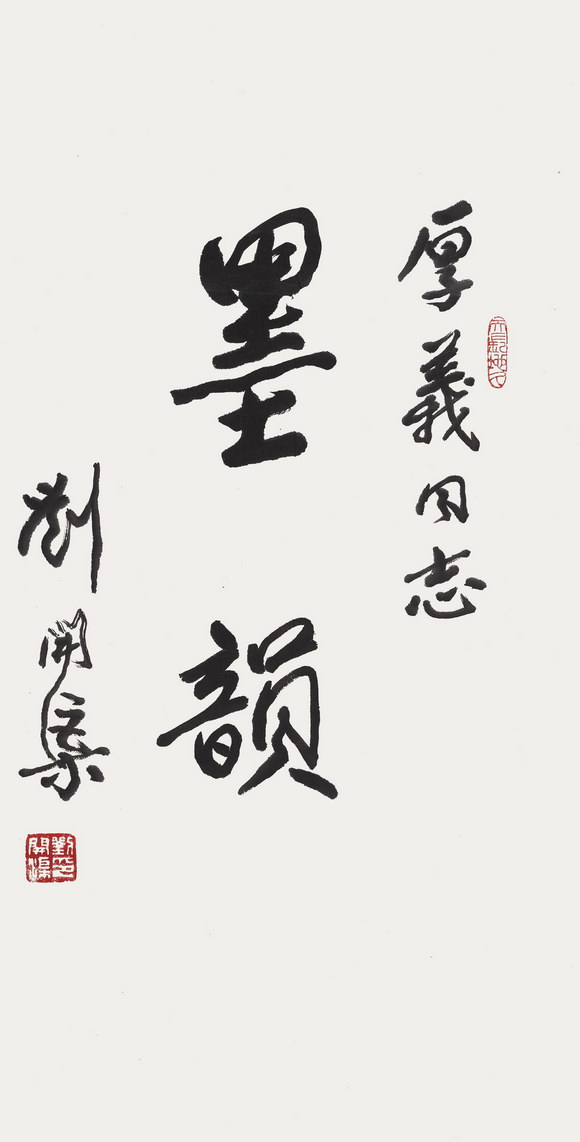 厚義同志
墨韻
劉開渠
劉開渠印